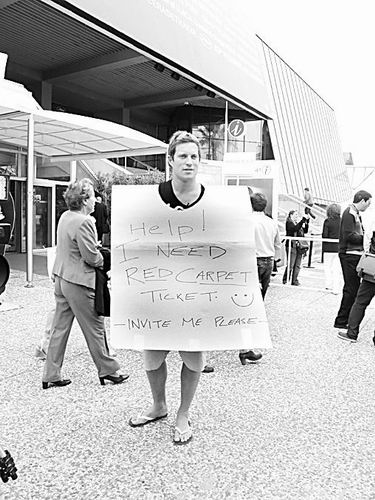 Help!
I NEED
RED CARPET
TICKET. :)
-INVITE ME PLEASE-